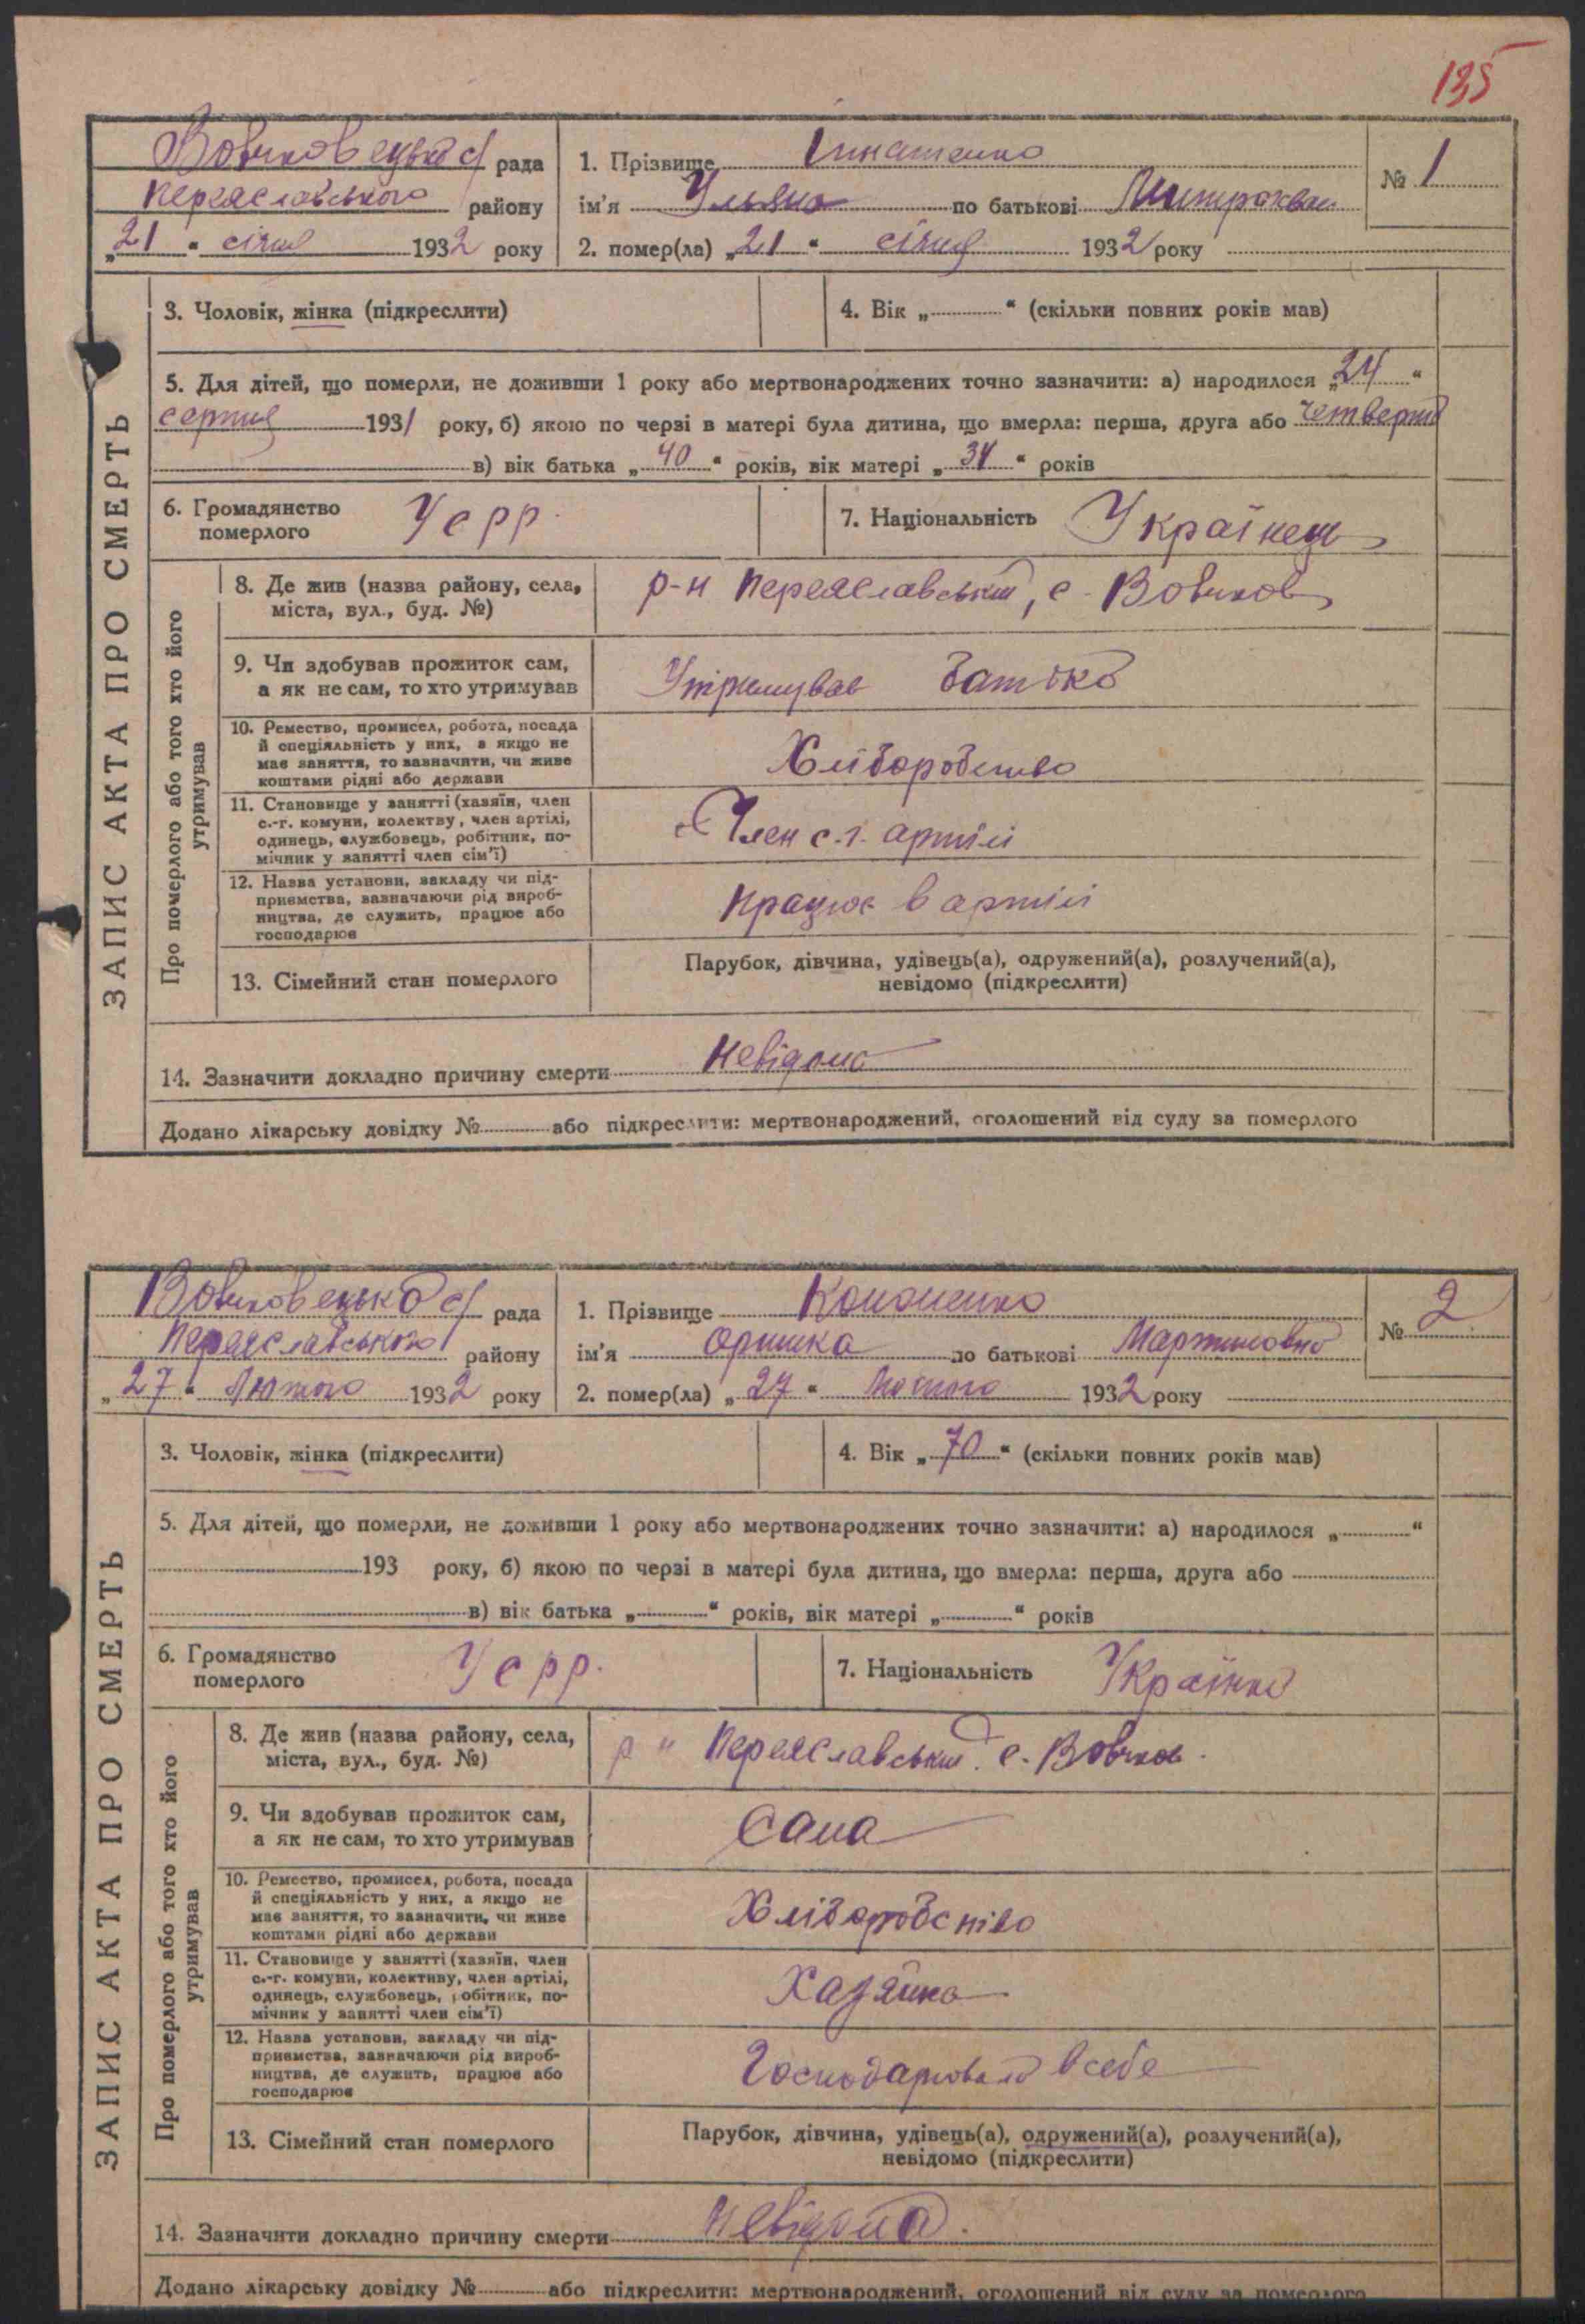 135
Вовчковецька с/ рада
Переяславського району
„21“ січня 1932 року
1. Прізвище Ігнатенко
ім'я Уляна по батькові Митрохван
2. помер(ла) „21“ січня 1932 року
№ 1
ЗАПИС АКТА ПРО СМЕРТЬ
3. Чоловік, жінка (підкреслити)
4. Вік „ “ (скільки повних років мав)
5. Для дітей, що померли, не доживши 1 року або мертвонароджених точно зазначити: а) народилося „24“
серпня 1931 року, б) якою по черзі в матері була дитина, що вмерла: перша, друга або четверта
в) вік батька „40“ років, вік матері „34“ років
6. Громадянство
померлого
Усрр.
7. Національність Українець
Про померлого або того хто його
утримував
8. Де жив (назва району, села,
міста, вул., буд. №)
р-н Переяславський, с. Вовчков
9. Чи здобував прожиток сам,
а як не сам, то хто утримував
Утримував батько
10. Ремество, промисел, робота, посада
й спеціяльність у них, а якщо не
має заняття, то зазначити, чи живе
коштами рідні або держави
Хліборобство
11. Становище у занятті (хазяїн, член
с.-г. комуни, колектву, член артілі,
одинець, службовець, робітник, по-
мічник у занятті член сім'ї)
Член с.г. артілі
12. Назва установи, закладу чи під-
приємства, зазначаючи рід вироб-
ництва, де служить, працює або
господарює
Працює в артілі
13. Сімейний стан померлого
Парубок, дівчина, удівець(а), одружений(а), розлучений(а),
невідомо (підкреслити)
14. Зазначити докладно причину смерти Невідома
Додано лікарську довідку № або підкреслити: мертвонароджений, оголошений від суду за померлого
Вовчковецька с/ рада
Переяславського району
„27“ Лютого 1932 року
1. Прізвище Кононенко
ім'я Оришка по батькові Мартиновна
2. помер(ла) „27“ Лютого 1932 року
№ 2
ЗАПИС АКТА ПРО СМЕРТЬ
3. Чоловік, жінка (підкреслити)
4. Вік „70“ (скільки повних років мав)
5. Для дітей, що померли, не доживши 1 року або мертвонароджених точно зазначити: а) народилося „ “
193 року, б) якою по черзі в матері була дитина, що вмерла: перша, друга або
в) вік батька „ “ років, вік матері „ “ років
6. Громадянство
померлого
Усрр.
7. Національність Українка
Про померлого або того хто його
утримував
8. Де жив (назва району, села,
міста, вул., буд. №)
р н Переяславський. с. Вовчков.
9. Чи здобував прожиток сам,
а як не сам, то хто утримував
Сама
10. Ремество, промисел, робота, посада
й спеціяльність у них, а якщо не
має заняття, то зазначити, чи живе
коштами рідні або держави
Хліборобство
11. Становище у занятті (хазяїн, член
с.-г. комуни, колективу, член артілі,
одинець, службовець, робітник, по-
мічник у занятті член сім'ї)
Хазяйка
12. Назва установи, закладу чи під-
приємства, зазначаючи рід вироб-
ництва, де служить, працює або
господарює
Господарювала в себе
13. Сімейний стан померлого
Парубок, дівчина, удівець(а), одружений(а), розлучений(а),
невідомо (підкреслити)
14. Зазначити докладно причину смерти Невідома.
Додано лікарську довідку № або підкреслити: мертвонароджений, оголошений від суду за померлого